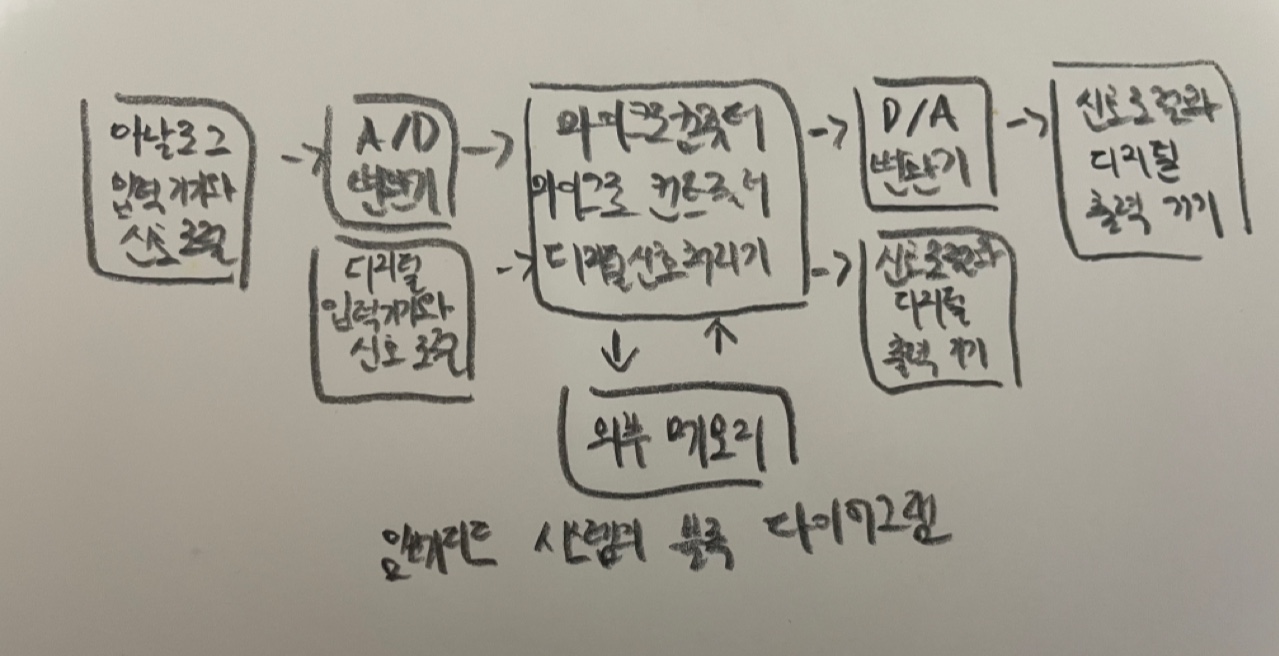 아날로그
입력 기기와
신호 조절
A/D
변환기
디지털
입력기기와
신호 조절
마이크로컴퓨터
마이크로 컨트롤러
디지털신호처리기
외부 메모리
D/A
변환기
신호조절와
디지털
출력 기기
신호조절와
디지털
출력 기기
임베디드 시스템의 블록 다이어그램